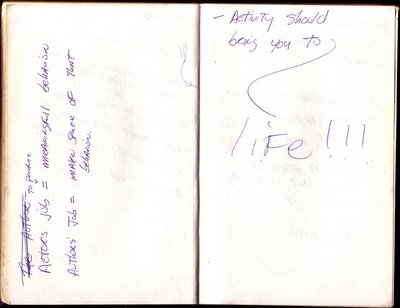 The Author
to produce
Actor's job = meaningfull behavior
Authors' Job = make space of that
behavior.
- Activity should
bring you to
life!!!